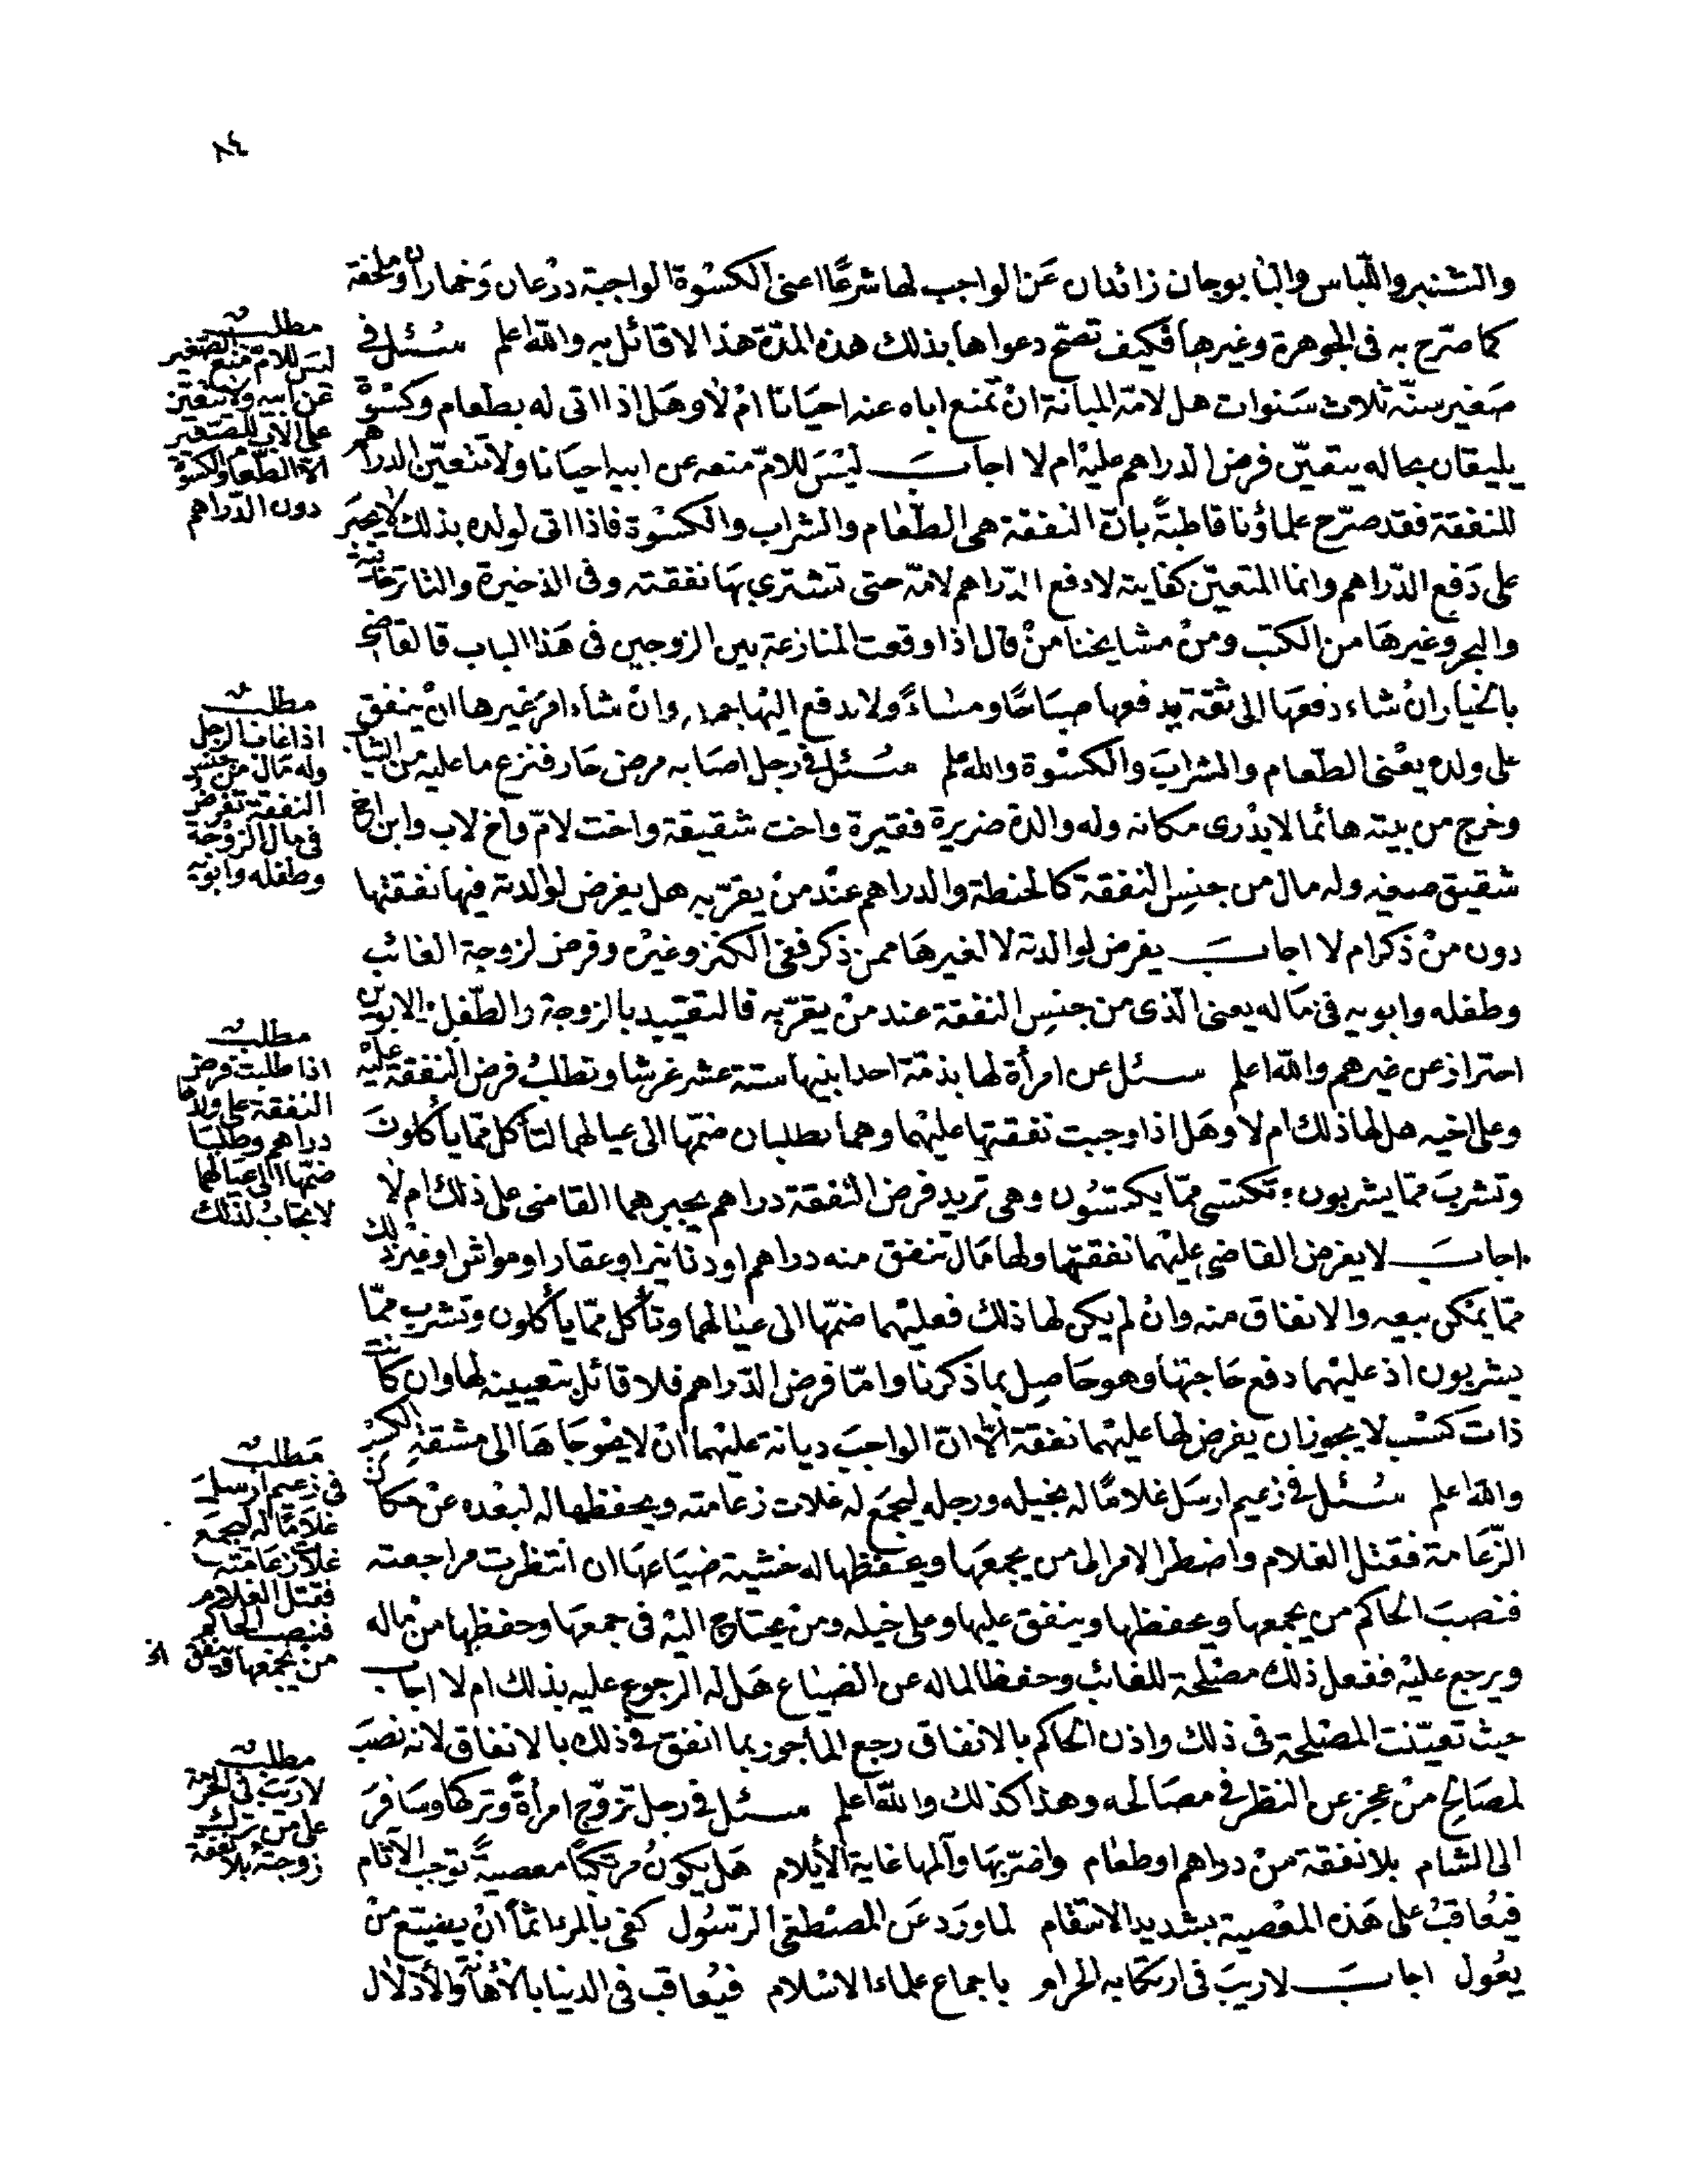 ٨٤
والتشنبر واللباس والبابوجان زائدان عن الواجب لها شرعًا اعنى الكسوة الواجبة درعان وخماران وملحفة
كما صرّح به فى الجوهرة وغيرها فكيف تصحّ دعواها بذلك هذه المدّة هذا لا قائل به والله اعلم سئل فى
صغير سنّه ثلاث سنوات هل لامّه المبانة ان تمنع اباه عنه احيانا ام لا وهل اذا اتى له بطعام وكسوة
يليقان بحاله يتعيّن فرض الدراهم عليه ام لا اجاب ليس للامّ منعه عن ابيه احيانا ولا تتعيّن الدراهم
للنفقة فقد صرّح علماؤنا قاطبةً بانّ النفقة هى الطّعام والشراب والكسوة فاذا اتى لولده بذلك لا يجبر
على دفع الدّراهم وانما المتعيّن كفايته لا دفع الدّراهم لامّه حتى تشترى بها نفقته وفى الذخيرة والتاترخانية
والبحر وغيرها من الكتب ومن مشايخنا من قال اذا وقعت المنازعة بين الزوجين فى هذا الباب قالقاضى
بالخيار ان شاء دفعها الى ثقة يدفعها صباحًا ومساءً ولا يدفع اليها جملة وان شاء امر غيرها ان ينفق
على ولده يعنى الطّعام والشراب والكسوة والله اعلم سئل فى رجل اصابه مرض حار فنزع ما عليه من الثياب
وخرج من بيته هائما لا يدرى مكانه وله والدة ضريرة فقيرة واخت شقيقة واخت لامّ واخ لاب وابن اخ
شقيق صغير وله مال من جنس النفقة كالحنطة والدراهم عند من يقرّ به هل يفرض لوالدته فيها نفقتها
دون من ذكر ام لا اجاب يفرض لوالدته لا لغيرها ممن ذكر ففى الكنز وغيره وفرض لزوجة الغائب
وطفله وابويه فى ماله يعنى الّذى من جنس النفقة عند من يقرّ به فالتقييد بالزوجة والطّفل والابوين
احتراز عن غيرهم والله اعلم سئل عن امرأة لها بذمّة احد ابنيها ستة عشر غرشا وتطلب فرض النفقة عليه
وعلى اخيه هل لها ذلك ام لا وهل اذا وجبت نفقتها عليهما وهما يطلبان ضمّها الى عيالهما لتأكل ممّا يأكلون
وتشرب ممّا يشربون وتكتسى ممّا يكتسون وهى تريد فرض النفقة دراهم يجبرهما القاضى على ذلك ام لا
اجاب لا يفرض القاضى عليهما نفقتها ولها مال تنفق منه دراهم او دنانير او عقار او مواش او غير ذلك
ممّا يمكن بيعه والانفاق منه وان لم يكن لها ذلك فعليهما ضمّها الى عيالهما وتأكل ممّا يأكلون وتشرب ممّا
يشربون اذ عليهما دفع حاجتها وهو حاصل بما ذكرنا وامّا فرض الدّراهم فلا قائل بتعيينه لها وان كانت
ذات كسب لا يجوز ان يفرض لها عليهما نفقة الّا انّ الواجب ديانة عليهما ان لا يحوجاها الى مشقة الكسب
والله اعلم سئل فى زعيم ارسل غلامًا له بخيله ورجله ليجمع له غلات زعامته ويحفظها له لبعده عن مكان
الزّعامة فقتل الغلام واضطر الامر الى من يجمعها ويحفظها له خشية ضياعها ان انتظرت مراجعته
فنصب الحاكم من يجمعها ويحفظها وينفق عليها وعلى خيله ومن يحتاج اليه فى جمعها وحفظها من ماله
ويرجع عليه ففعل ذلك مصلحة للغائب وحفظا لماله عن الضياع هل له الرجوع عليه بذلك ام لا اجاب
حيث تعيّنت المصلحة فى ذلك واذن الحاكم بالانفاق رجع المأجور بما انفق فى ذلك بالانفاق لانه نصب
لمصالح من عجز عن النظر فى مصالحه وهذا كذلك والله اعلم سئل فى رجل تزوّج امرأة وتركها وسافر
الى الشام بلا نفقة من دراهم او طعام واضرّ بها وآلمها غاية الأيلام هل يكون مرتكبًا معصيةً توجب الآثام
فيعاقب على هذه المعصية بشديد الانتقام لما ورد عن المصطفى الرّسول كفى بالمرء اثمًا ان يضيّع من
يعول اجاب لا ريب فى ارتكابه الحرام باجماع علماء الاسلام فيعاقب فى الدنيا بالأهانة والأذلال
مطلب
ليس للامّ منع الصّغير
عن ابيه ولا تتعيّن
على الاب للصّغير
الا الطّعام والكسوة
دون الدّراهم
مطلب
اذا غاب الرجل
وله مال من جنس
النفقة تفرض
فى مال الزوجة
وطفله وابويه
مطلب
اذا طلبت فرض
النفقة على ولدها
دراهم وطلبا
ضمّها الى عيالهما
لا يجاب لذلك
مطلب
فى زعيم ارسل
غلامًا له ليجمع
غلات زعامته
فقتل الغلام
فنصب الحاكم
من يجمعها وينفق الخ
مطلب
لا ريب فى الحرمة
على من ترك
زوجته بلا نفقة